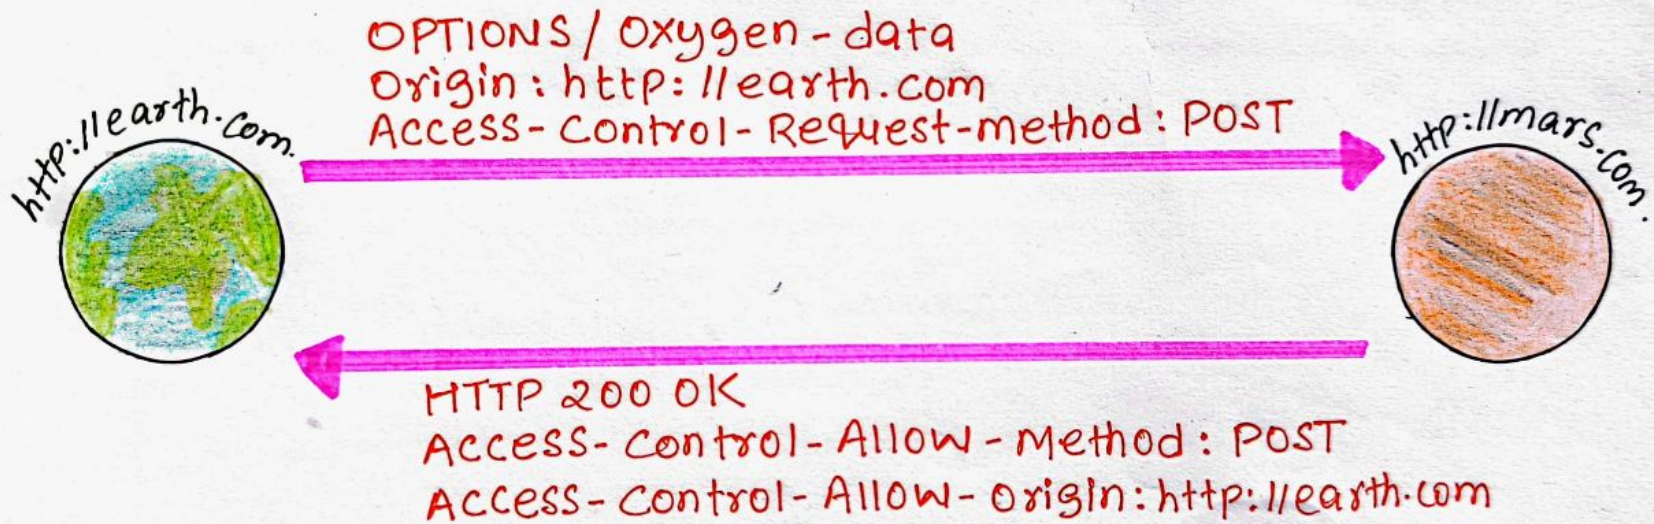 OPTIONS / Oxygen-data
Origin: http://earth.com
Access-Control-Request-method: POST
http://earth.com.
http://mars.com.
HTTP 200 OK
Access-Control-Allow-Method: POST
Access-Control-Allow-Origin: http://earth.com